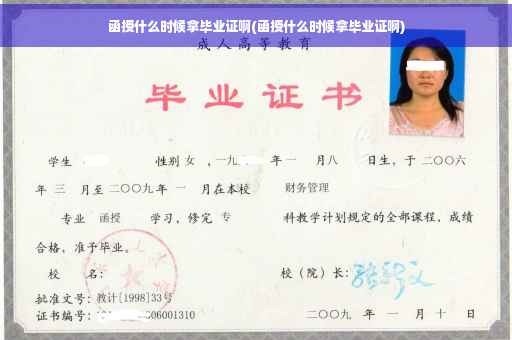 函授什么时候拿毕业证啊(函授什么时候拿毕业证啊)
成人高等教育
毕业证书
学生 性别 女 ,一九 年 一 月八 日生，于 二〇〇六
年 三 月至 二〇〇九 年 一 月在本校 财务管理
专业 函授 学习，修完 专 科教学计划规定的全部课程，成绩
合格，准予毕业。
校 名： 校（院）长：
批准文号：教计[1998]33号
证书编号： 06001310 二〇〇九 年 一 月 十 日